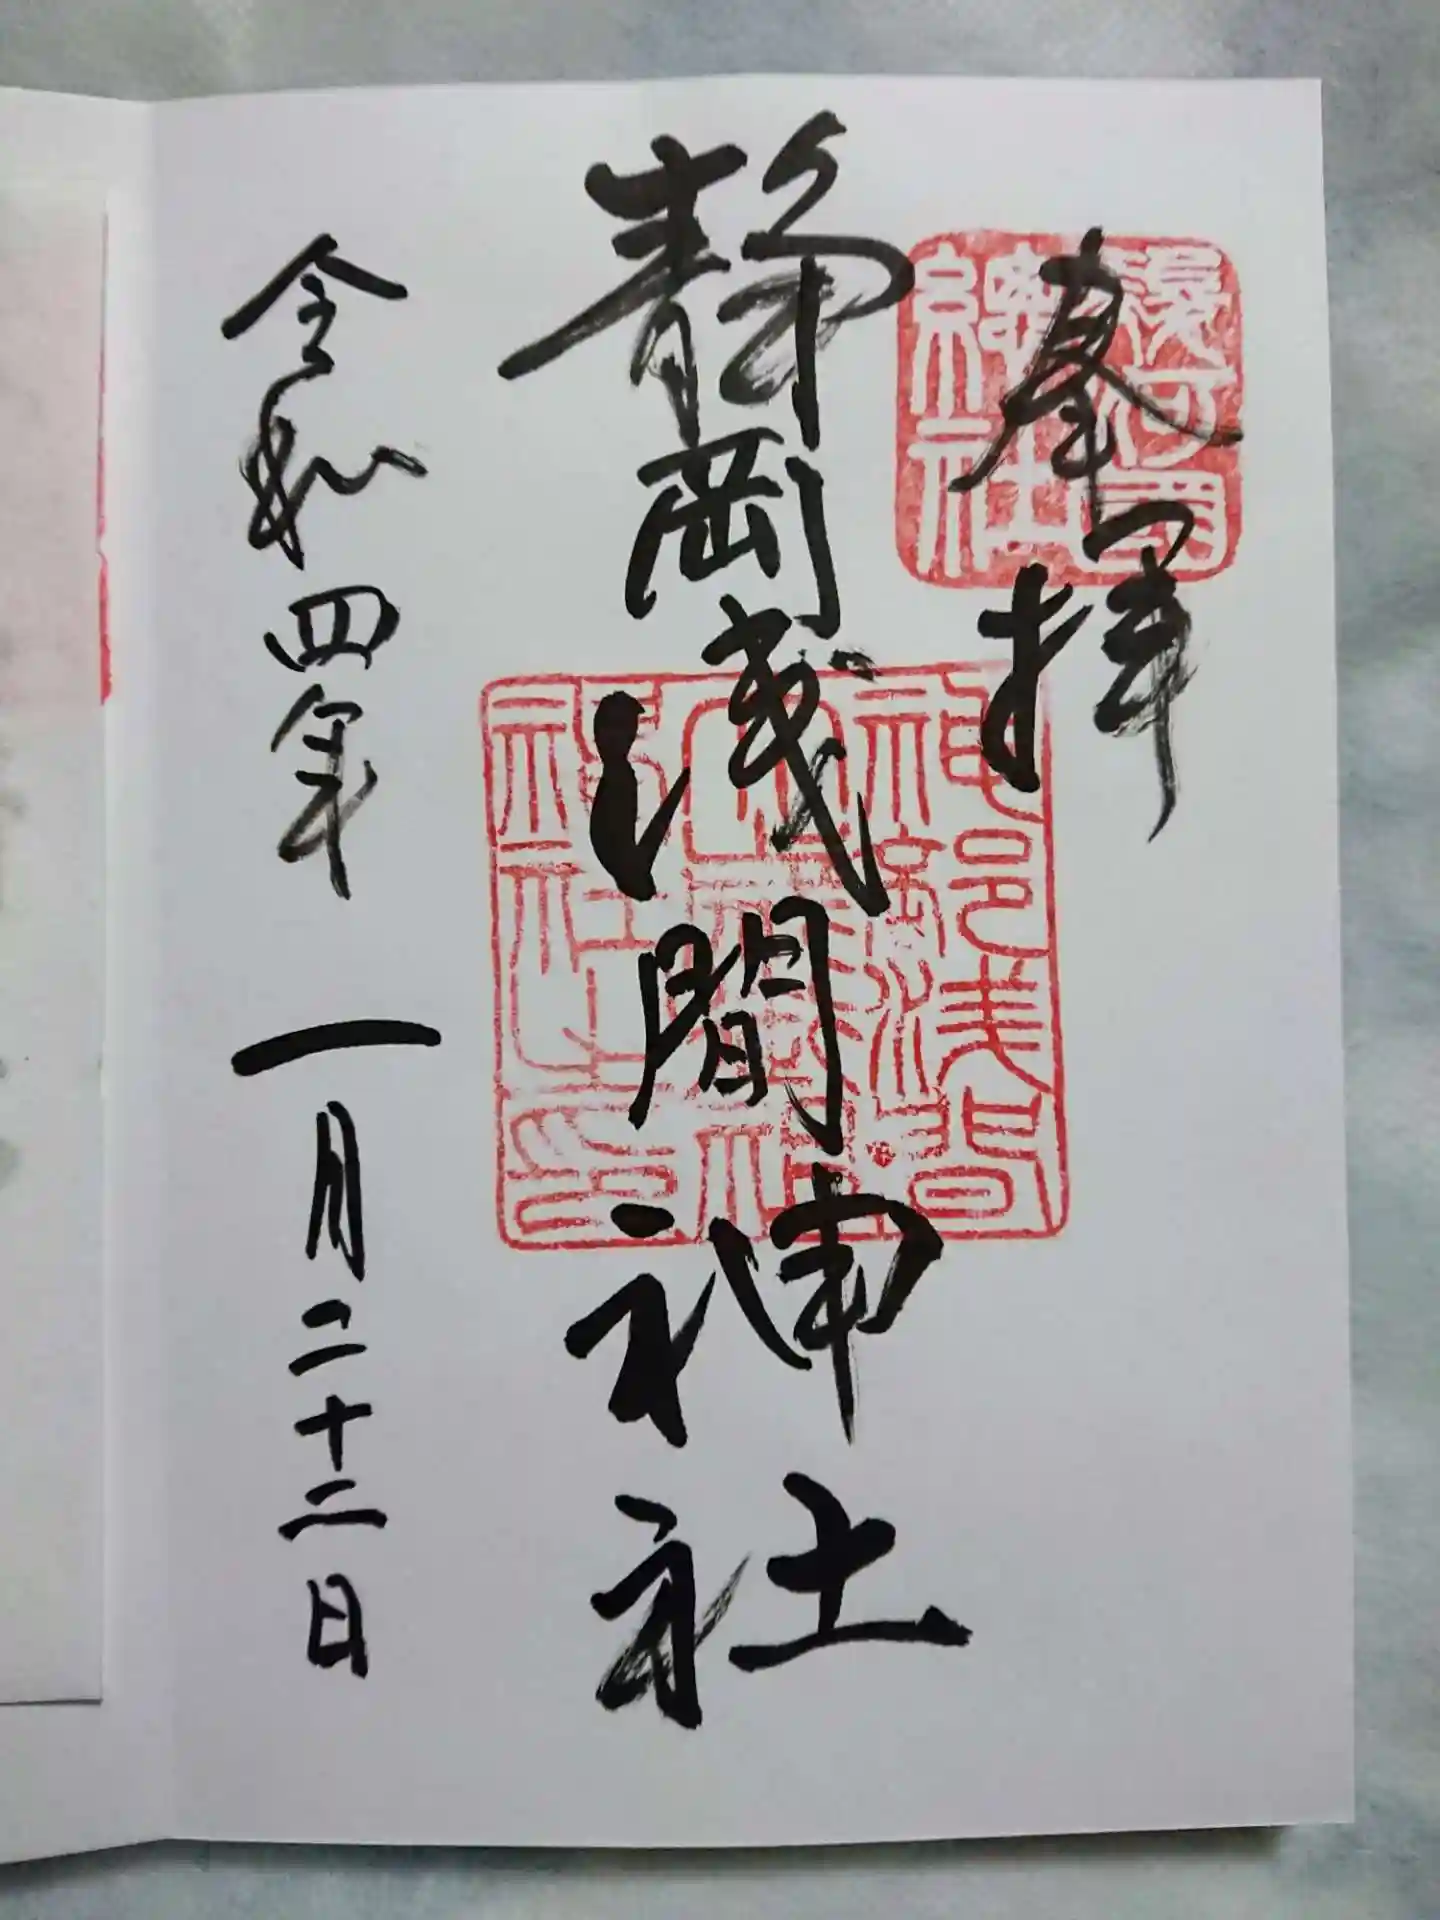 奉拝
駿河国
總社
静岡浅間神社
神部浅間
大歳御祖
神社之印
令和四年 一月二十二日